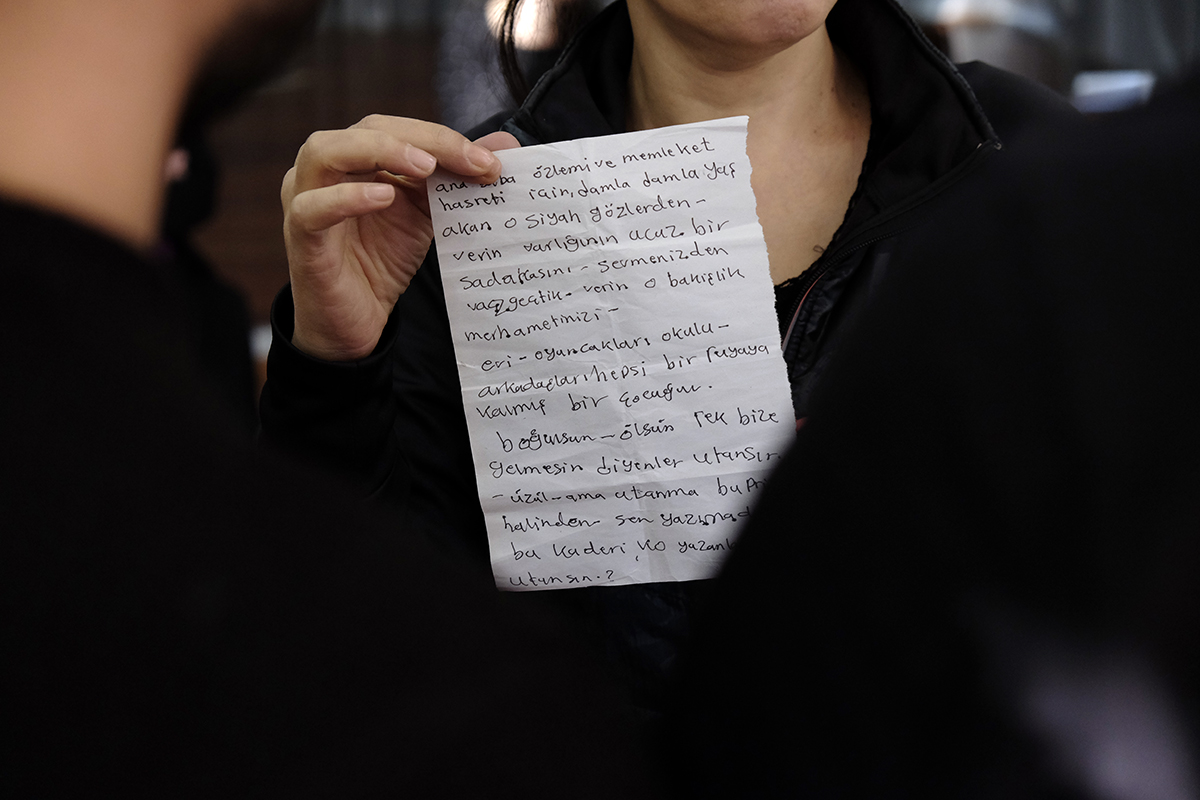 ana baba özlemi ve memleket
hasreti için, damla damla yaş
akan o siyah gözlerden -
verin varlığının ucuz bir
sadakasını - sevmenizden
vazgeçtik - verin o bakışlık
merhametinizi -
evi - oyuncakları okulu -
arkadaşları hepsi bir rüyaya
kalmış bir çocuğun.
boğulsun - ölsün tek bize
gelmesin diyenler utansın.
- üzül - ama utanma bu
halinden - sen
bu kaderi
utansın.?